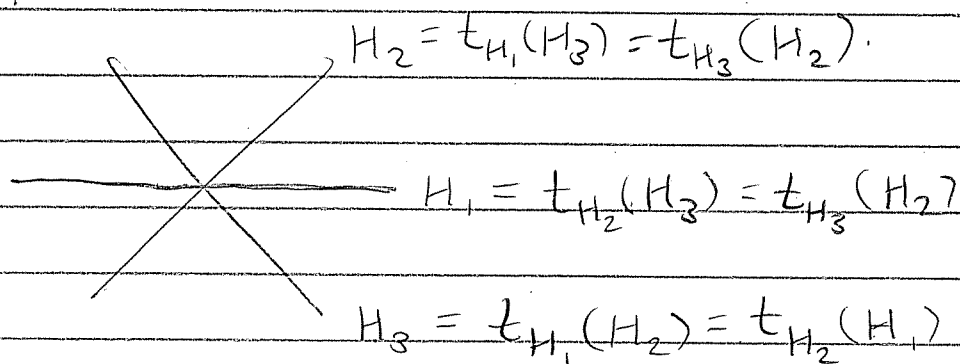 H₂ = t_{H₁}(H₃) = t_{H₃}(H₂).
H₁ = t_{H₂}(H₃) = t_{H₃}(H₂)
H₃ = t_{H₁}(H₂) = t_{H₂}(H₁)